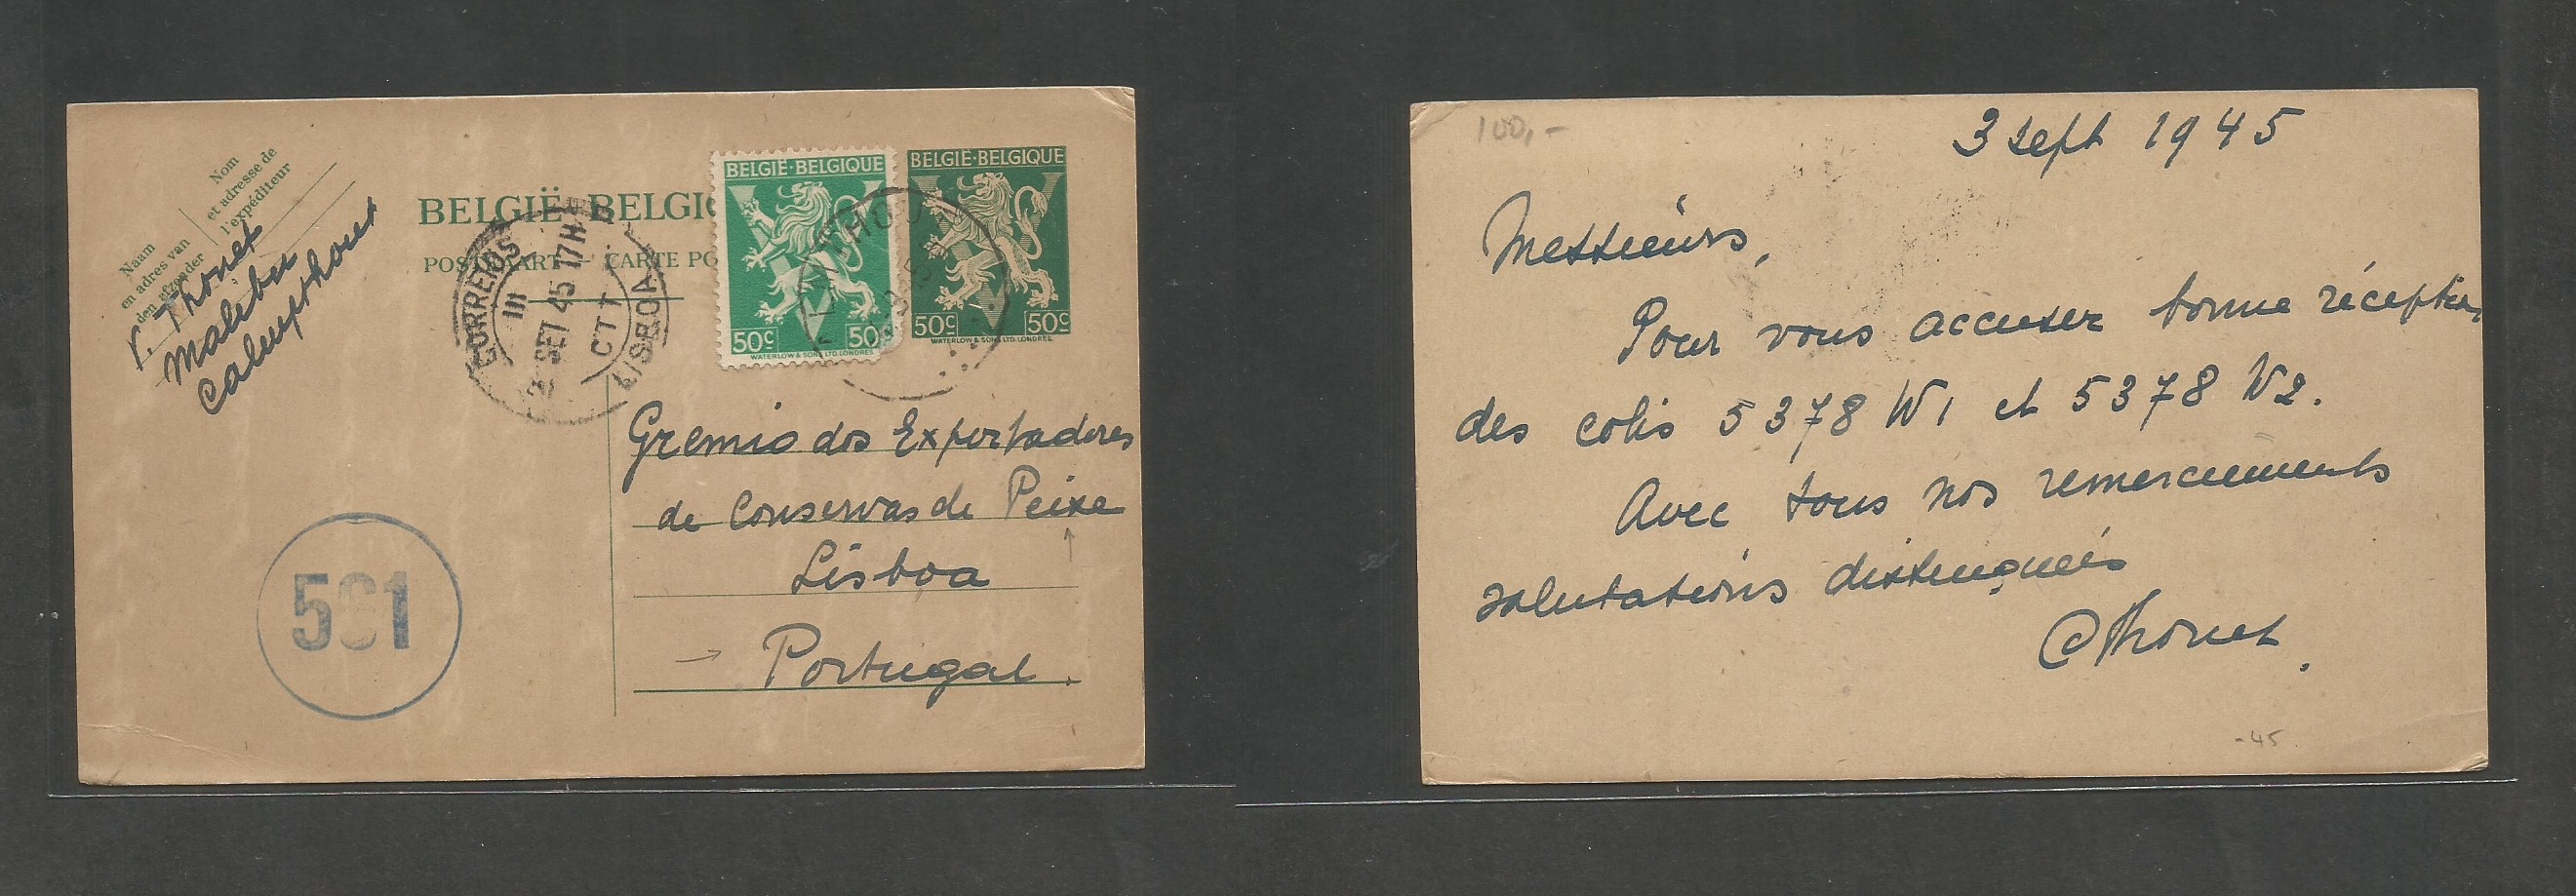 Nom
et adresse de
l'expéditeur
Naam
en adres van
den afzender
V. Thonet
Malibu
Calmpthout
BELGIË-BELGIQ
POSTKAART — CARTE PO
CORREIOS
III
SET 45 17H
CTT
LISBOA
BELGIË-BELGIQUE
50c 50c
WATERLOW & SONS LTD. LONDRES
BELGIË-BELGIQUE
50c 50c
WATERLOW & SONS LTD. LONDRES
Gremio dos Exportadores
de Conservas de Peixe
Lisboa
→ Portugal.
561
100,-
3 sept 1945
Messieurs,
Pour vous accuser bonne réception,
des colis 5378 W1 et 5378 W2.
Avec tous nos remerciements
salutations distinguées
CThonet.
-45